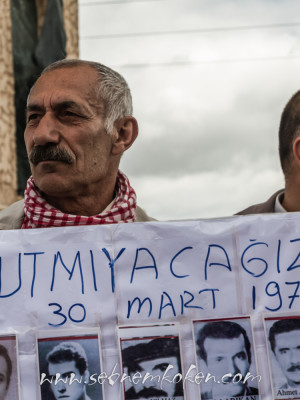 UTMIYACAĞIZ
30 MART 197
Ahmet
www.sebnemkoken.com